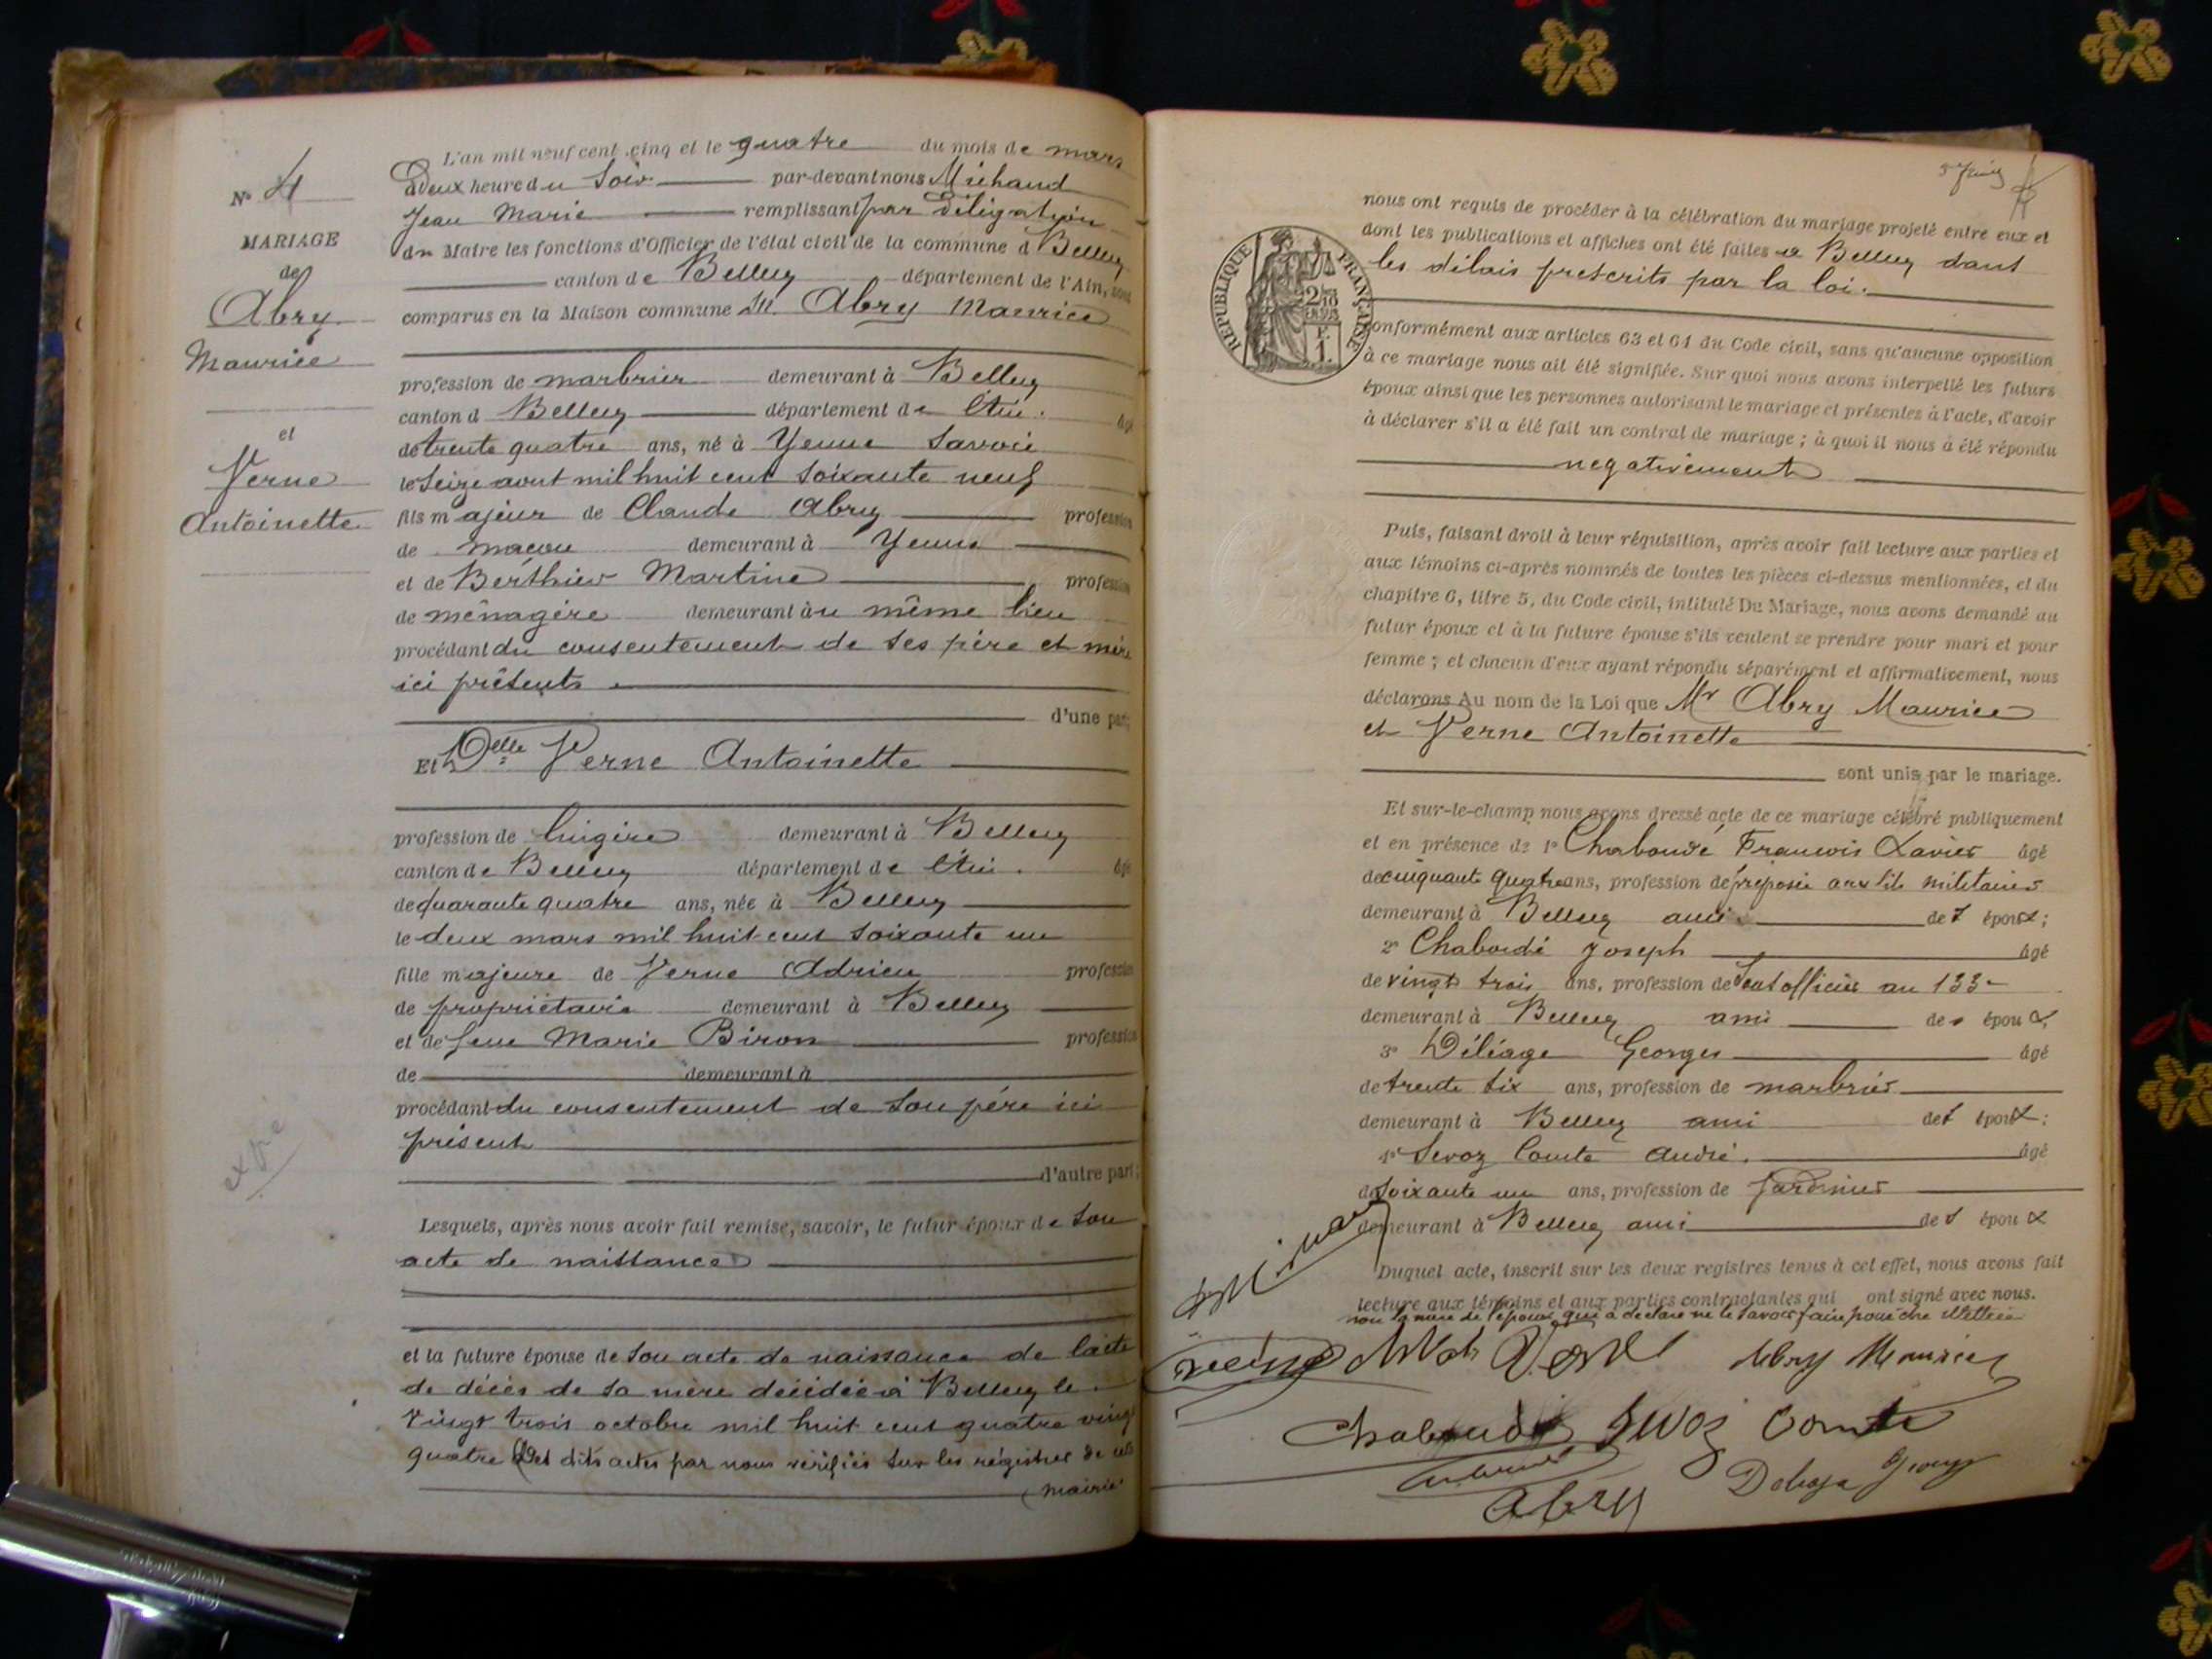 L'an mil neuf cent cinq et le quatre du mois de mars
N° 4
à deux heure du soir par-devant nous Michaud
Jean Marie remplissant par délégation
MARIAGE
du Maire les fonctions d'Officier de l'état civil de la commune d Belley
de
canton de Belley département de l'Ain, sont
Abry
comparus en la Maison commune M. Abry Maurice
Maurice
profession de marbrier demeurant à Belley
canton d Belley département de l'Ain. âgé
et
de trente quatre ans, né à Yenne Savoie
Verne
le seize aout mil huit cent soixante neuf
Antoinette
fils majeur de Claude Abry profession
de maçon demeurant à Yenne
et de Berthier Martine profession
de ménagère demeurant àu même lieu
procédant du consentement de ses père et mère
ici présents
d'une part;
Et Delle Verne Antoinette
profession de lingère demeurant à Belley
canton de Belley département de l'Ain. âgée
de quarante quatre ans, née à Belley
le deux mars mil huit cent soixante un
fille majeure de Verne Adrien profession
de propriétaire demeurant à Belley
et de feue Marie Biron profession
de demeurant à
procédant du consentement de son père ici
présent
d'autre part;
Lesquels, après nous avoir fait remise, savoir, le futur époux de son
acte de naissance
et la future épouse de son acte de naissance de l'acte
de décès de sa mère décédée à Belley le
vingt trois octobre mil huit cent quatre vingt
quatre Les dits actes par nous vérifiés sur les régistres de cette
mairie
nous ont requis de procéder à la célébration du mariage projeté entre eux et
dont les publications et affiches ont été faites à Belley dans
les délais prescrits par la loi.
RÉPUBLIQUE FRANÇAISE
2/10
F.
1.
Conformément aux articles 63 et 64 du Code civil, sans qu'aucune opposition
à ce mariage nous ait été signifiée. Sur quoi nous avons interpellé les futurs
époux ainsi que les personnes autorisant le mariage et présentes à l'acte, d'avoir
à déclarer s'il a été fait un contrat de mariage ; à quoi il nous à été répondu
negativement
Puis, faisant droit à leur réquisition, après avoir fait lecture aux parties et
aux témoins ci-après nommés de toutes les pièces ci-dessus mentionnées, et du
chapitre 6, titre 5, du Code civil, intitulé Du Mariage, nous avons demandé au
futur époux et à la future épouse s'ils veulent se prendre pour mari et pour
femme ; et chacun d'eux ayant répondu séparément et affirmativement, nous
déclarons Au nom de la Loi que Mr Abry Maurice
et Verne Antoinette
sont unis par le mariage.
Et sur-le-champ nous avons dressé acte de ce mariage célébré publiquement
et en présence de 1° Chaboudé François Xavier âgé
de cinquante quatre ans, profession de préposé aux lits militaires
demeurant à Belley ami des époux;
2° Chaboudé Joseph âgé
de vingt trois ans, profession de Sous officier au 133e
demeurant à Belley ami des époux;
3° Déléage Georges âgé
de trente six ans, profession de marbrier
demeurant à Belley ami des époux;
4° Sevoz Comte André. âgé
de soixante un ans, profession de jardinier
demeurant à Belley ami des époux
Duquel acte, inscrit sur les deux registres tenus à cet effet, nous avons fait
lecture aux témoins et aux parties contractantes qui ont signé avec nous.
non la mère de l'époux qui a déclaré ne le savoir faire pour être illettrée
Verne Abry Maurice
Chaboudé Sevoz Comte
Abry